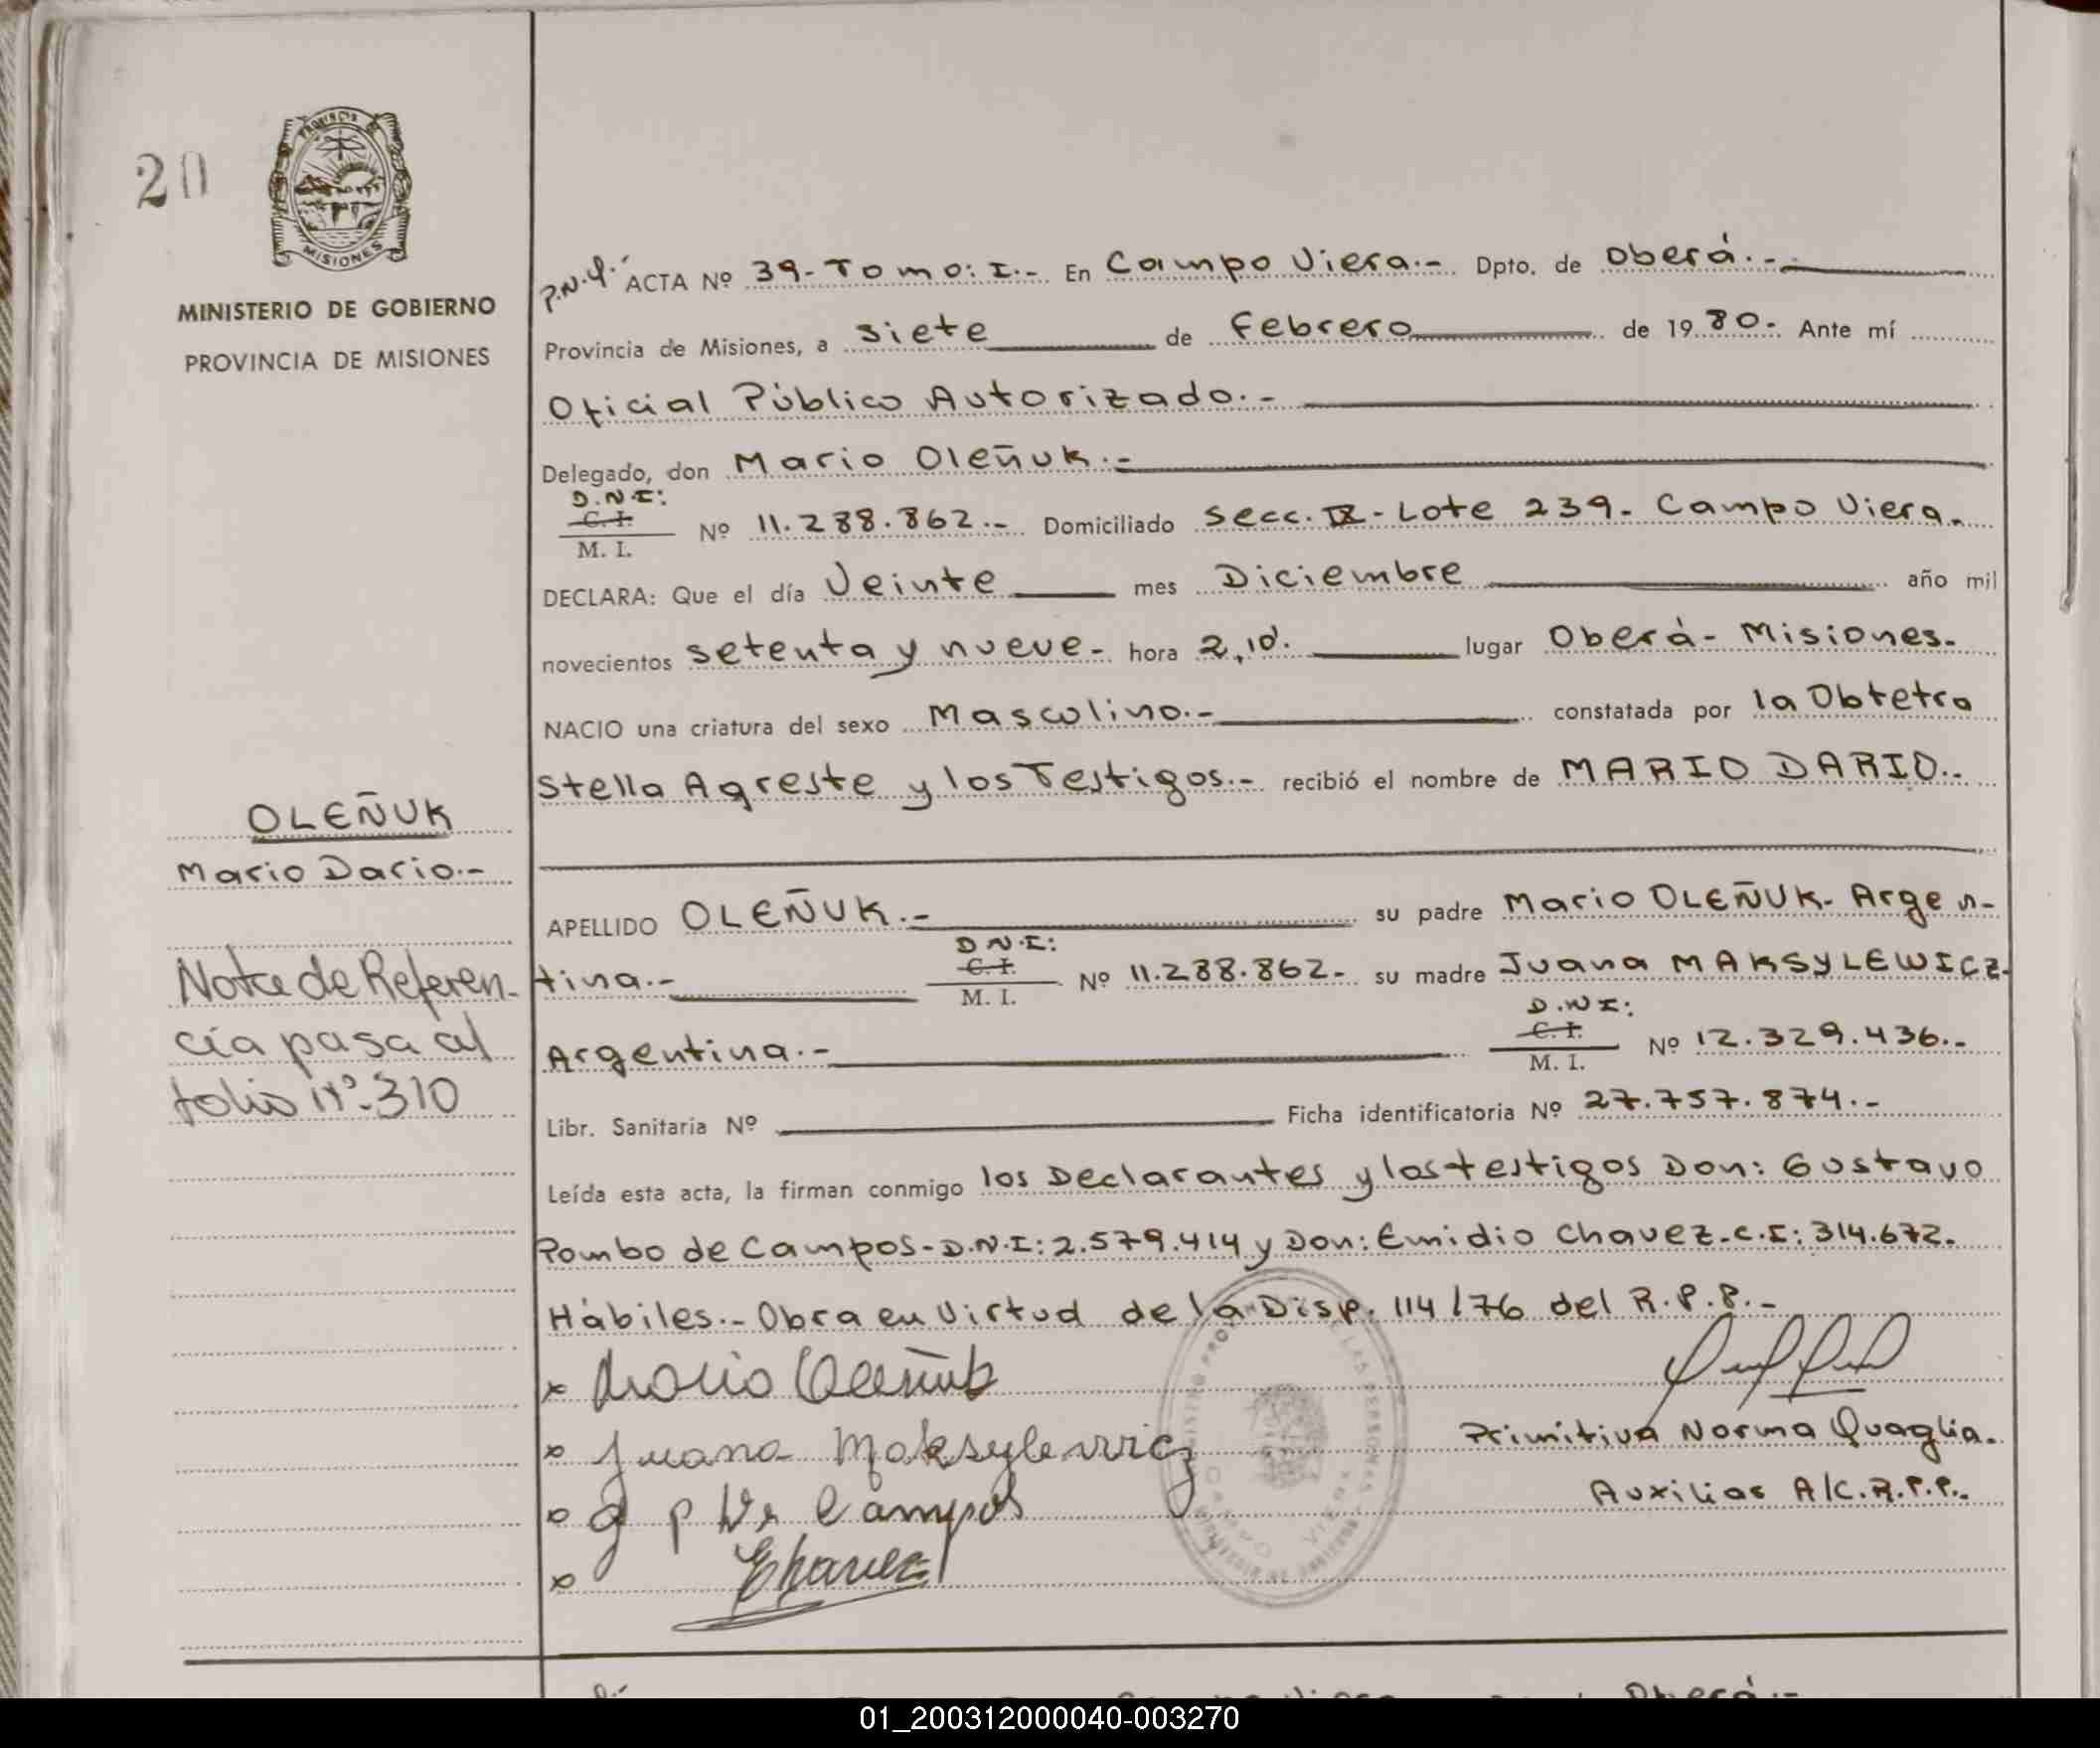 20
PROVINCIA DE
MISIONES
MINISTERIO DE GOBIERNO
PROVINCIA DE MISIONES
OLEÑUK
Mario Dario.-
Nota de Referen-
cia pasa al
folio Nº 310
ACTA Nº 39-Tomo: I.- En Campo Viera.- Dpto. de Oberá.-
Provincia de Misiones, a siete de Febrero de 1980.- Ante mí
Oficial Público Autorizado.-
Delegado, don Mario Oleñuk.-
D.N.I:
C. I.
M. I. Nº 11.288.862.- Domiciliado Secc. IX- Lote 239- Campo Viera.
DECLARA: Que el día Veinte mes Diciembre año mil
novecientos setenta y nueve- hora 2,10'. lugar Oberá- Misiones.
NACIO una criatura del sexo Masculino.- constatada por la Obtetra
Stella Agreste y los Testigos.- recibió el nombre de MARIO DARIO.-
APELLIDO OLEÑUK.- su padre Mario OLEÑUK- Argen-
D.N.I:
C. I.
tina.- M. I. Nº 11.288.862- su madre Juana MAKSYLEWICZ-
D.N.I:
C. I.
Argentina.- M. I. Nº 12.329.436.-
Libr. Sanitaria Nº Ficha identificatoria Nº 27.757.874.-
Leída esta acta, la firman conmigo los Declarantes y los testigos Don: Gustavo
Pombo de Campos-D.N.I: 2.579.414 y Don: Emidio Chavez-C.I: 314.672.
Hábiles.- Obra en Virtud de la Disp. 114/76 del R.P.P.-
x Mario Oleñuk
x Juana Maksylewicz
Primitiva Norma Quaglia.
x g p de Campos
Auxiliar A/C.R.P.P.
x EChavez
DE LAS PERSONAS
CAMPO VIERA
01_200312000040-003270